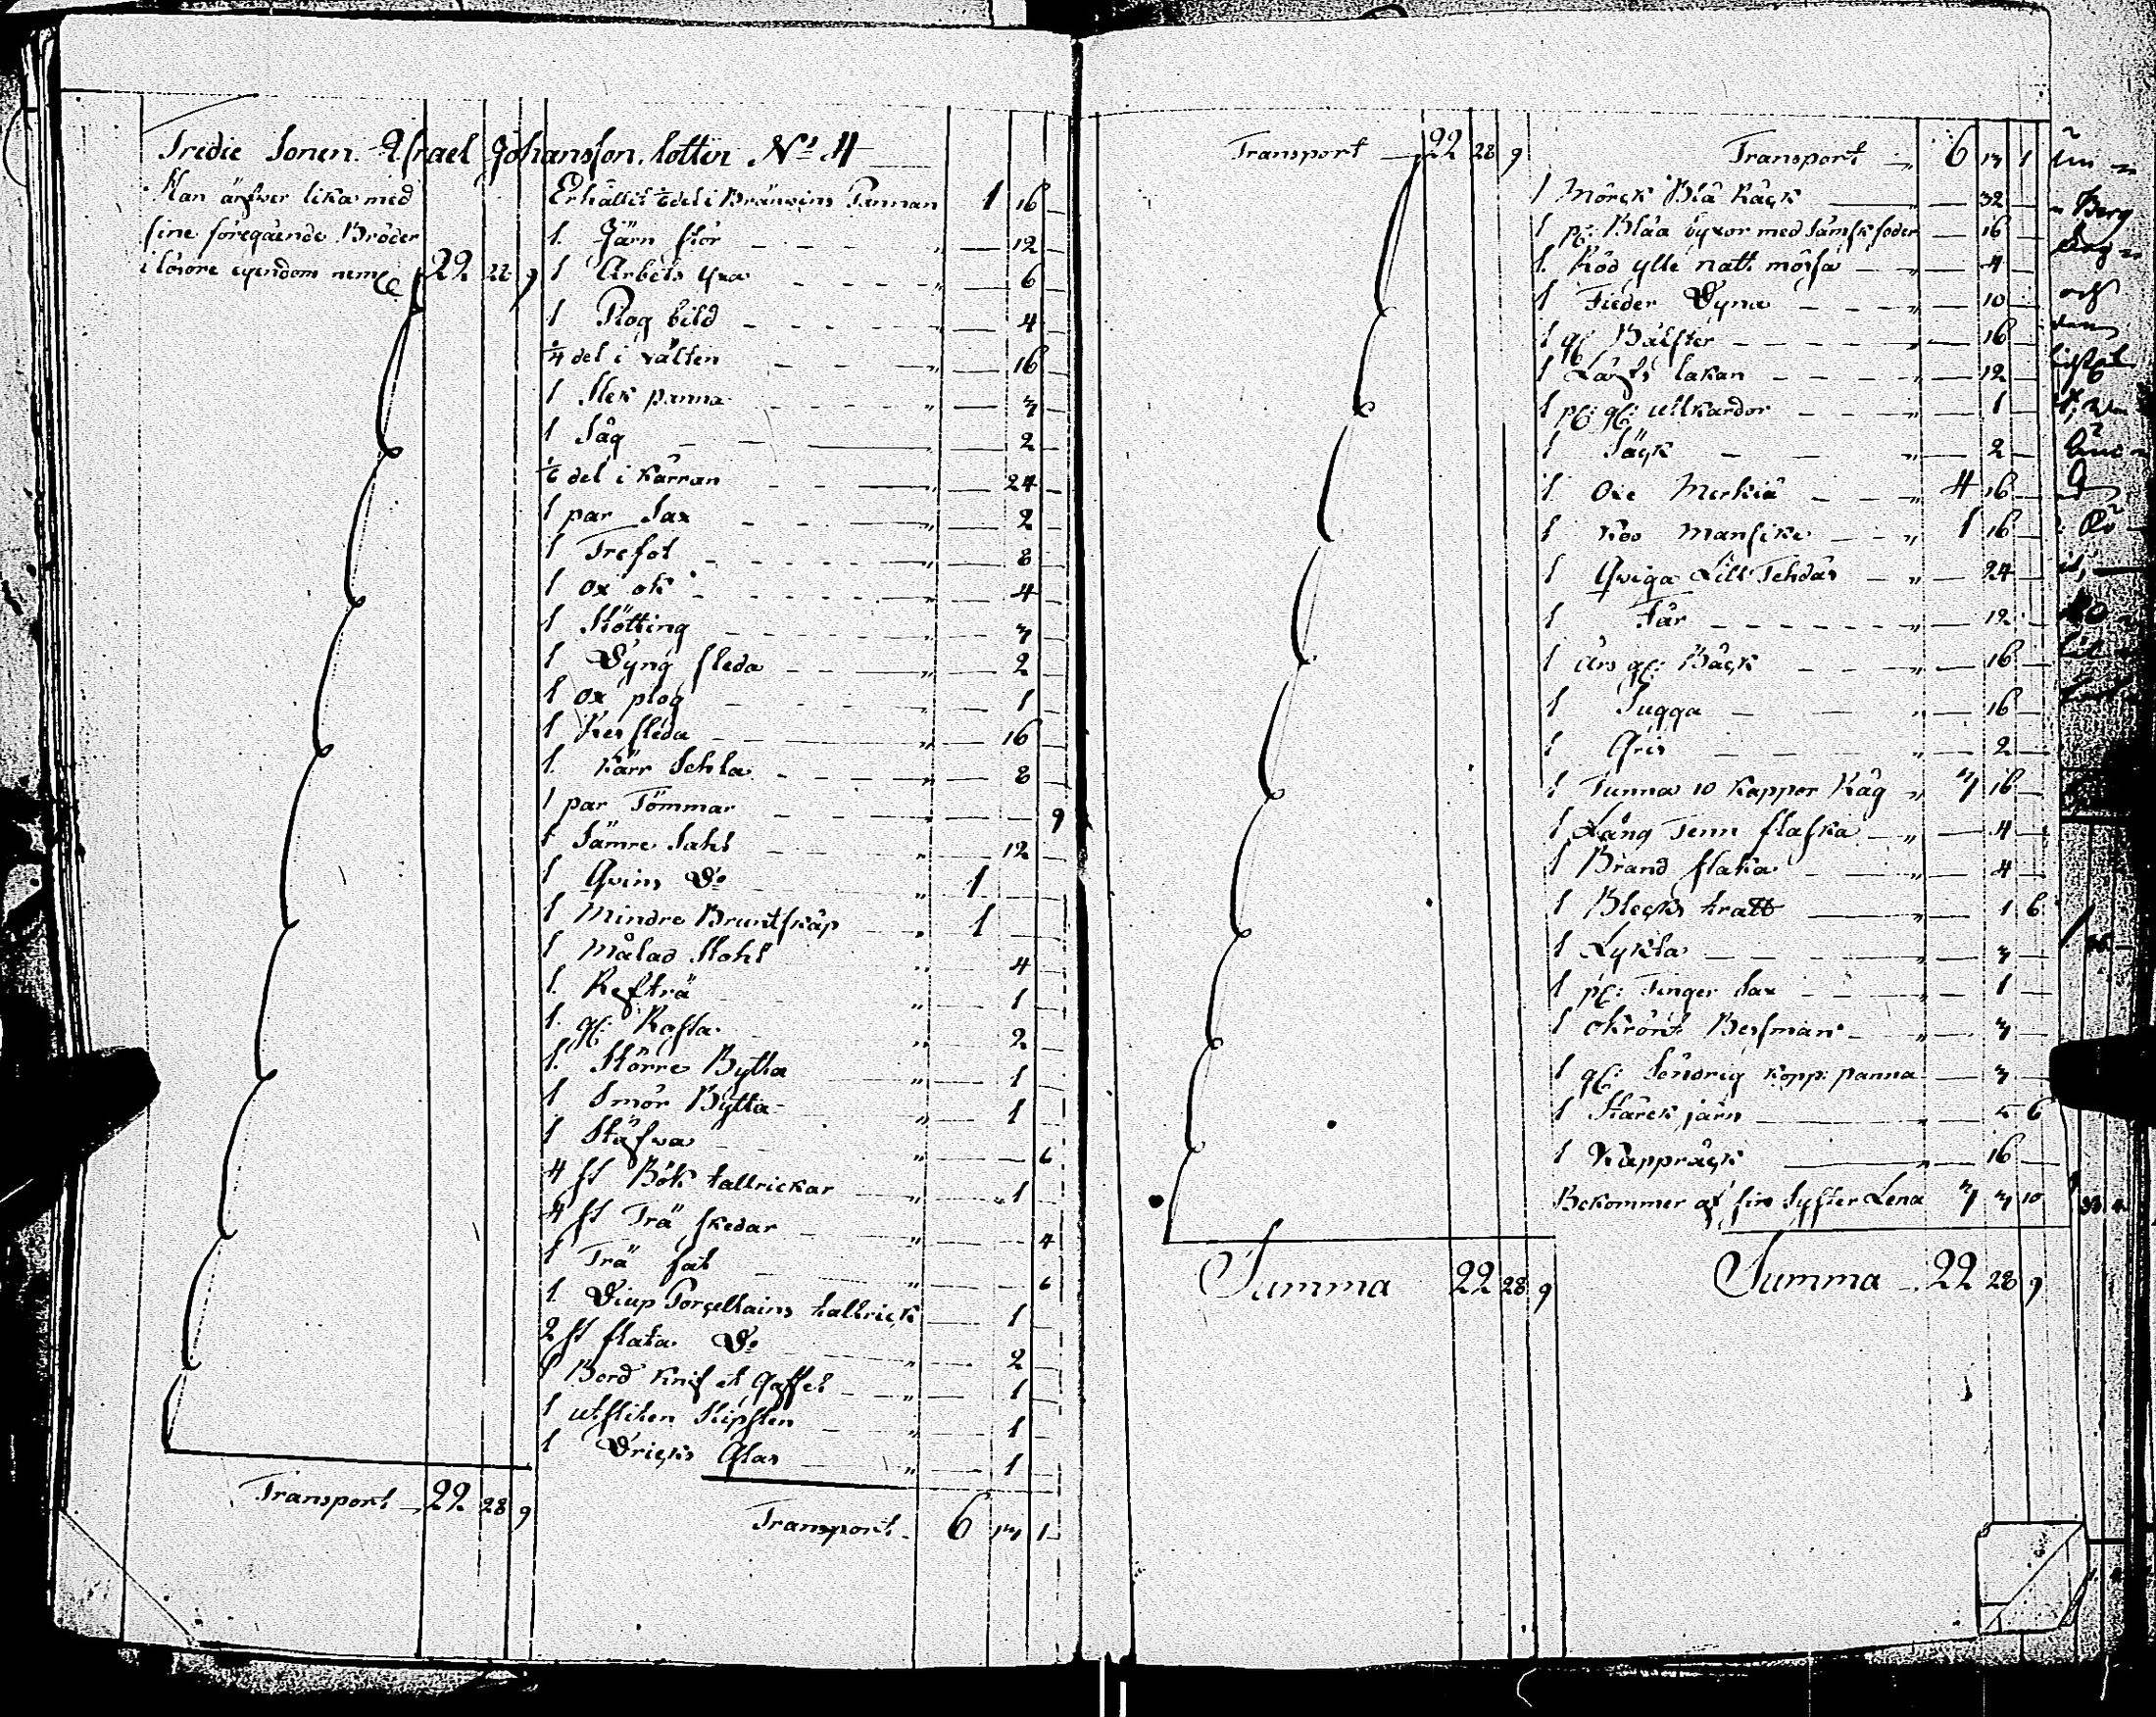 Tredie Sonen. Israel Johansson. lotten No 4
Han ärfwer lika med
sine föregående Bröder
i lösöre egendom neml 22 28 9
Transport 22 28 9
Erhållit 1/6 del i Bränvins Pannan 1 16
1. Järn stör 12
1 Arbets yxa 6
1 Plog bild 4
1/4 del i välten 16
1 Stek panna 3
1 Såg 2
1/6 del i Kärran 24
1 par Sax 2
1 Trefot 8
1 ox ok 4
1 Kötting 3
1 Dyng sleda 2
1 ox plog 1
1 Ressleda 16
1. Kärr Sehla 8
1 par Tömmar 9
1 Sämre Sahl 12
1 Qvins Do 1
1 Mindre Bruntskåp 1
1 Målad Stohl 4
1. Refträ 1
1. gl: Rafla 2
1. Större Bytta 1
1 Smör Bytta 1
1 Stäfva 6
4 st Bök tallrickar 1
4 st Trä skedar 4
1 Trä fat 6
1. Diup Porcellains tallrick 1
2 st flata Do 2
1 Bord Knif et Gaffel 1
1 utsliten Slipsten 1
1 Dricks Glas 1
Transport 6 13 1
Transport 22 28 9
Summa 22 28 9
Transport 6 13 1
1 Mörck Blå Råck 32
1 pr: Blåa byxor med Sämskfoder 16
1. Röd ylle natt mössa 4
1 Fieder Dyna 10
1 gl Bålster 16
1 Lärfts lakan 12
1 pr: gl: ullkardor 1
1 Säck 2
1 Oxe Merkiä 4 16
1 Koo Mansike 1 16
1 Qviga Lill 24
1 Får 12
1 års gl: Båck 16
1 Sugga 16
1 Gris 2
1 Tunna 10 Kappor Råg 3 16
1 Lång Tenn flaska 4
1 Brand flaka 4
1 Blecks tratt 1 6
1 Lykta 3
1 pr: Finger Sax 1
1 okrönt Besman 3
1 gl: Söndrig Kopp: panna 3
1 Stärck järn 6
1 Kappråck 16
Bekommer af sin Syster Lena 3 3 10
Summa 22 28 9